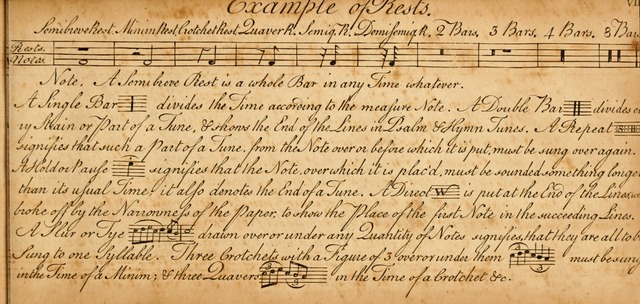 Example of Rests.
VII
Semibreve Rest. Minim Rest Crotchet Rest Quaver R. Semiq. R. Demisemiq R. 2 Bars. 3 Bars. 4 Bars. 8 Bars
Rests.
Notes.
Note. A Semibreve Rest is a whole Bar in any Time whatever.
A Single Bar divides the Time according to the measure Note. A Double Bar divides e
ry Strain or Part of a Tune, & shows the End of the Lines in Psalm & Hymn Tunes. A Repeat
signifies that such a Part of a Tune, from the Note over or before which it is put, must be sung over again.
A Hold or Pause signifies that the Note, over which it is plac'd, must be sounded something longer
than its usual Time: it also denotes the End of a Tune. A Direct W is put at the End of the Lines, w
broke off by the Narrowness of the Paper, to show the Place of the first Note in the succeeding Lines.
A Slur or Tye drawn over or under any Quantity of Notes signifies, that they are all to b
Sung to one Syllable. Three Crotchets with a Figure of 3 over or under them 3 must be sung
in the Time of a Minim; & three Quavers 3 in the Time of a Crotchet &c.